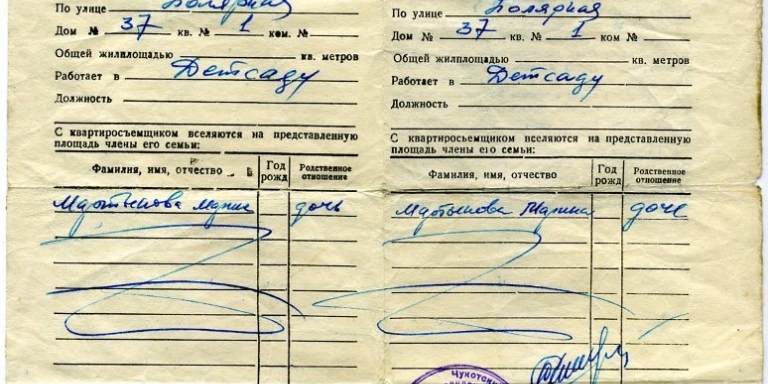 По улице Полярная
Дом № 37 кв. № 1 ком. №
Общей жилплощадью кв. метров
Работает в Детсаду
Должность
С квартиросъемщиком вселяются на представленную
площадь члены его семьи:
Фамилия, имя, отчество Год рожд Родственное отношение
Мартынова Марина дочь
По улице Полярная
Дом № 37 кв. № 1 ком №
Общей жилплощадью кв. метров
Работает в Детсаду
Должность
С квартиросъемщиком вселяются на представленную
площадь члены его семьи:
Фамилия, имя, отчество Год рожд Родственное отношение
Мартынова Марина дочь